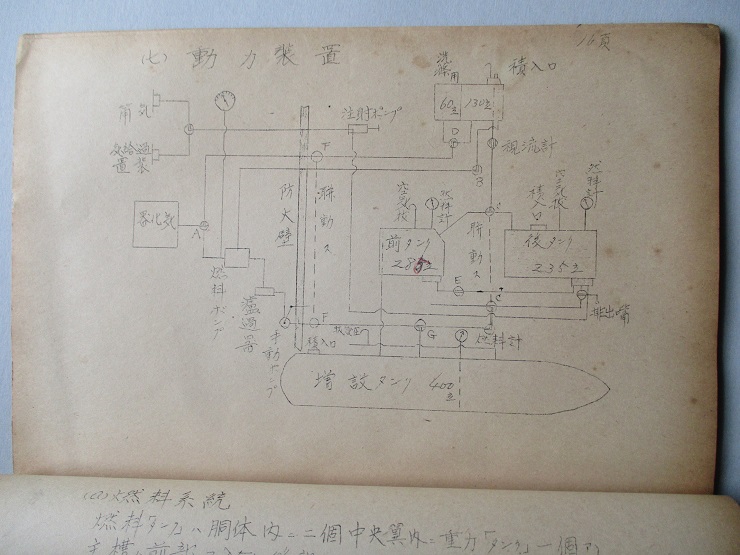 16頁
(七) 動力装置
洗滌用
積入口
60立
130立
注射ポンプ
筒気
D
F
視流計
B
空気抜
燃料計
積入口
空気抜
燃料計
防火壁
聯動ス
聯動ス
気化器
A
前タンク
285立
後タンク
235立
燃料ポンプ
濾過器
E
C
排出嘴
手動ポンプ
F
積入口
G
燃料計
増設タンク 400立
(イ)燃料系統
燃料「タンク」ハ胴体内ニ二個中央翼内ニ重力「タンク」一個